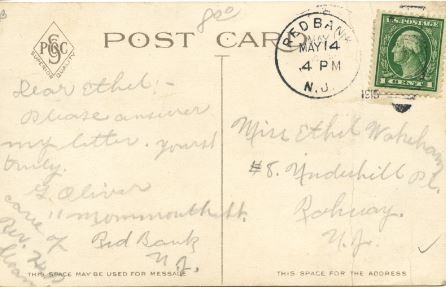 8 oo
POST CARD
P S C
SUPERIOR QUALITY
RED BANK
MAY 14
4 PM
N.J.
1915
U.S. POSTAGE
1 CENT 1
Dear Ethel:-
Please answer
my letter. yours
truly.
G. Oliver
11 Mommouth St.
Red Bank
N.J.
care of
Rev.
Miss Ethel
#8. Underhill Pl.
Rahway.
N.J.
THIS SPACE MAY BE USED FOR MESSAGE
THIS SPACE FOR THE ADDRESS